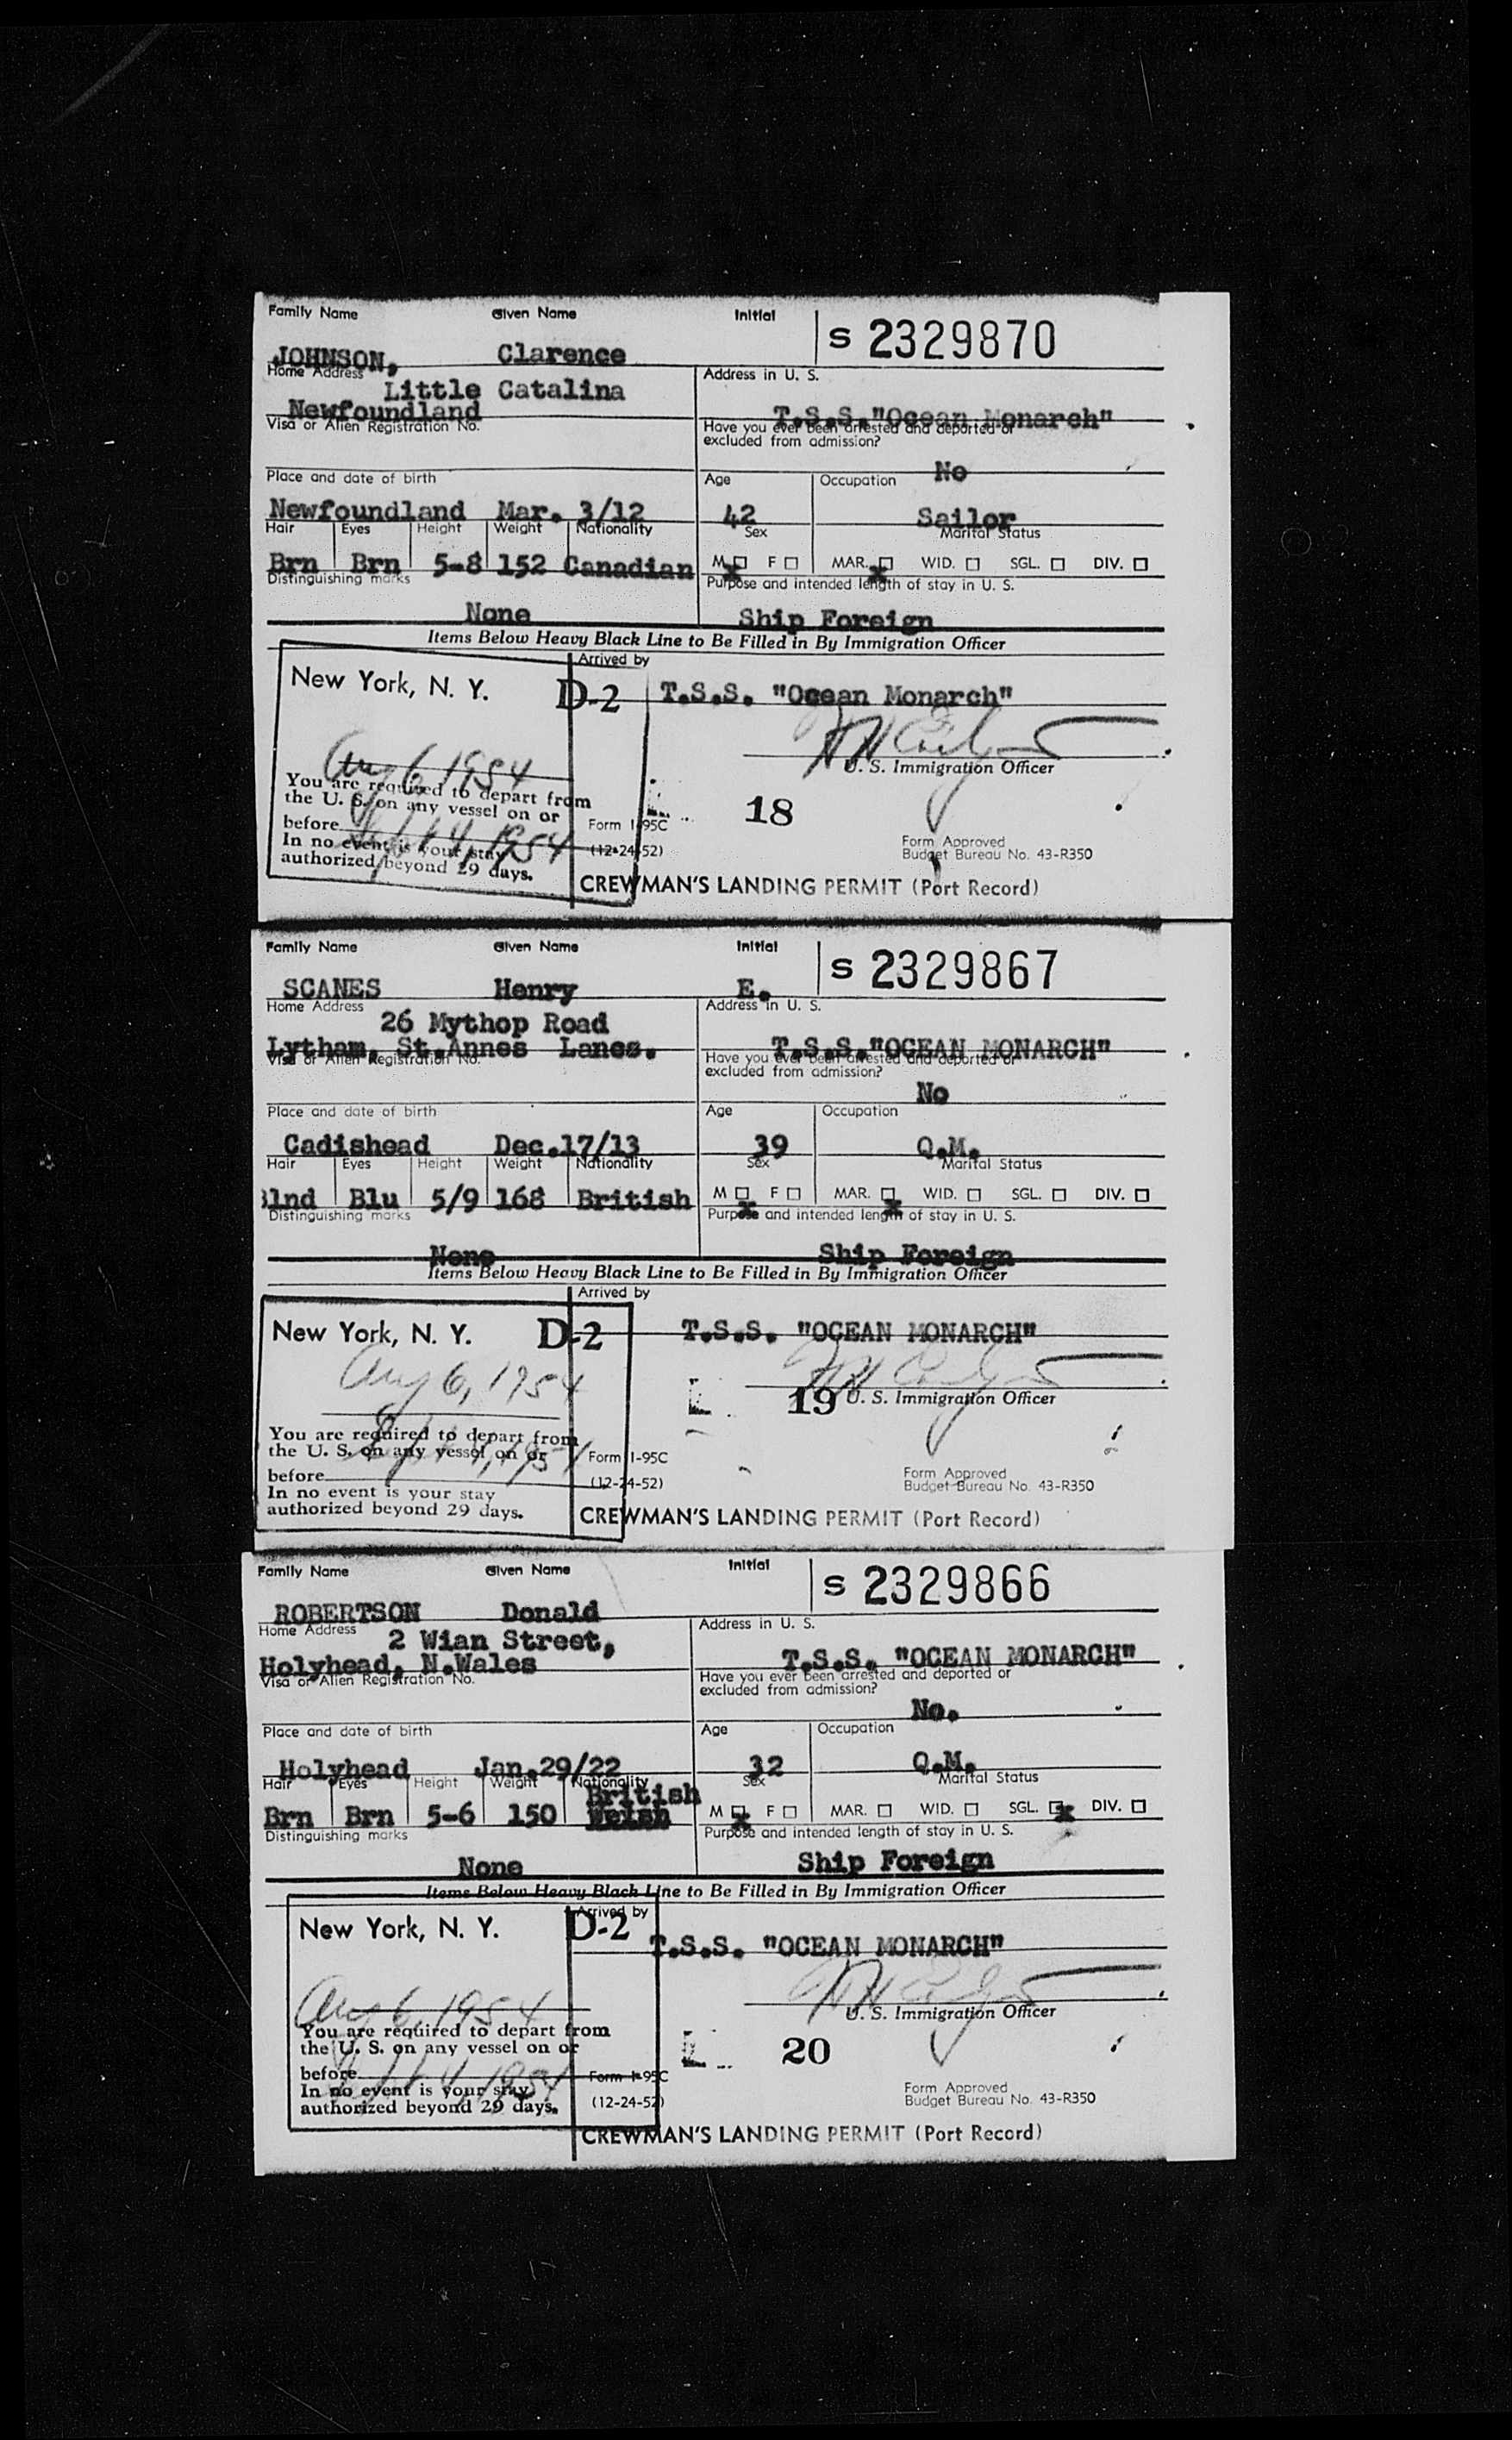 Family Name Given Name Initial S 2329870
JOHNSON, Clarence
Home Address Address in U. S.
Little Catalina
Newfoundland T.S.S."Ocean Monarch"
Visa or Alien Registration No. Have you ever been arrested and deported or
excluded from admission?
No
Place and date of birth Age Occupation
Newfoundland Mar. 3/12 42 Sailor
Hair Eyes Height Weight Nationality Sex Marital Status
Brn Brn 5-8 152 Canadian M F MAR. WID. SGL. DIV.
x x
Distinguishing marks Purpose and intended length of stay in U. S.
None Ship Foreign
Items Below Heavy Black Line to Be Filled in By Immigration Officer
Arrived by
New York, N. Y. D-2 T.S.S. "Ocean Monarch"
Aug 6, 1954
U. S. Immigration Officer
You are required to depart from
the U. S. on any vessel on or
18
before Sept 4, 1954 Form I-95C
In no event is your stay (12-24-52) Form Approved
authorized beyond 29 days. Budget Bureau No. 43-R350
CREWMAN'S LANDING PERMIT (Port Record)
Family Name Given Name Initial S 2329867
SCANES Henry E.
Home Address Address in U. S.
26 Mythop Road
Lytham, St.Annes Lancs. T.S.S."OCEAN MONARCH"
Visa or Alien Registration No. Have you ever been arrested and deported or
excluded from admission?
No
Place and date of birth Age Occupation
Cadishead Dec.17/13 39 Q.M.
Hair Eyes Height Weight Nationality Sex Marital Status
Blnd Blu 5/9 168 British M F MAR. WID. SGL. DIV.
x x
Distinguishing marks Purpose and intended length of stay in U. S.
None Ship Foreign
Items Below Heavy Black Line to Be Filled in By Immigration Officer
Arrived by
New York, N. Y. D-2 T.S.S. "OCEAN MONARCH"
Aug 6, 1954
19 U. S. Immigration Officer
You are required to depart from
the U. S. on any vessel on or Form I-95C
before Sept 4, 1954
In no event is your stay (12-24-52) Form Approved
authorized beyond 29 days. Budget Bureau No. 43-R350
CREWMAN'S LANDING PERMIT (Port Record)
Family Name Given Name Initial S 2329866
ROBERTSON Donald
Home Address Address in U. S.
2 Wian Street,
Holyhead, N.Wales T.S.S. "OCEAN MONARCH"
Visa or Alien Registration No. Have you ever been arrested and deported or
excluded from admission?
No.
Place and date of birth Age Occupation
Holyhead Jan.29/22 32 Q.M.
Hair Eyes Height Weight Nationality Sex Marital Status
British
Brn Brn 5-6 150 Welsh M F MAR. WID. SGL. DIV.
x x
Distinguishing marks Purpose and intended length of stay in U. S.
None Ship Foreign
Items Below Heavy Black Line to Be Filled in By Immigration Officer
Arrived by
New York, N. Y. D-2 T.S.S. "OCEAN MONARCH"
Aug 6, 1954
U. S. Immigration Officer
You are required to depart from
the U. S. on any vessel on or 20
before Sept 4, 1954 Form I-95C
In no event is your stay (12-24-52) Form Approved
authorized beyond 29 days. Budget Bureau No. 43-R350
CREWMAN'S LANDING PERMIT (Port Record)